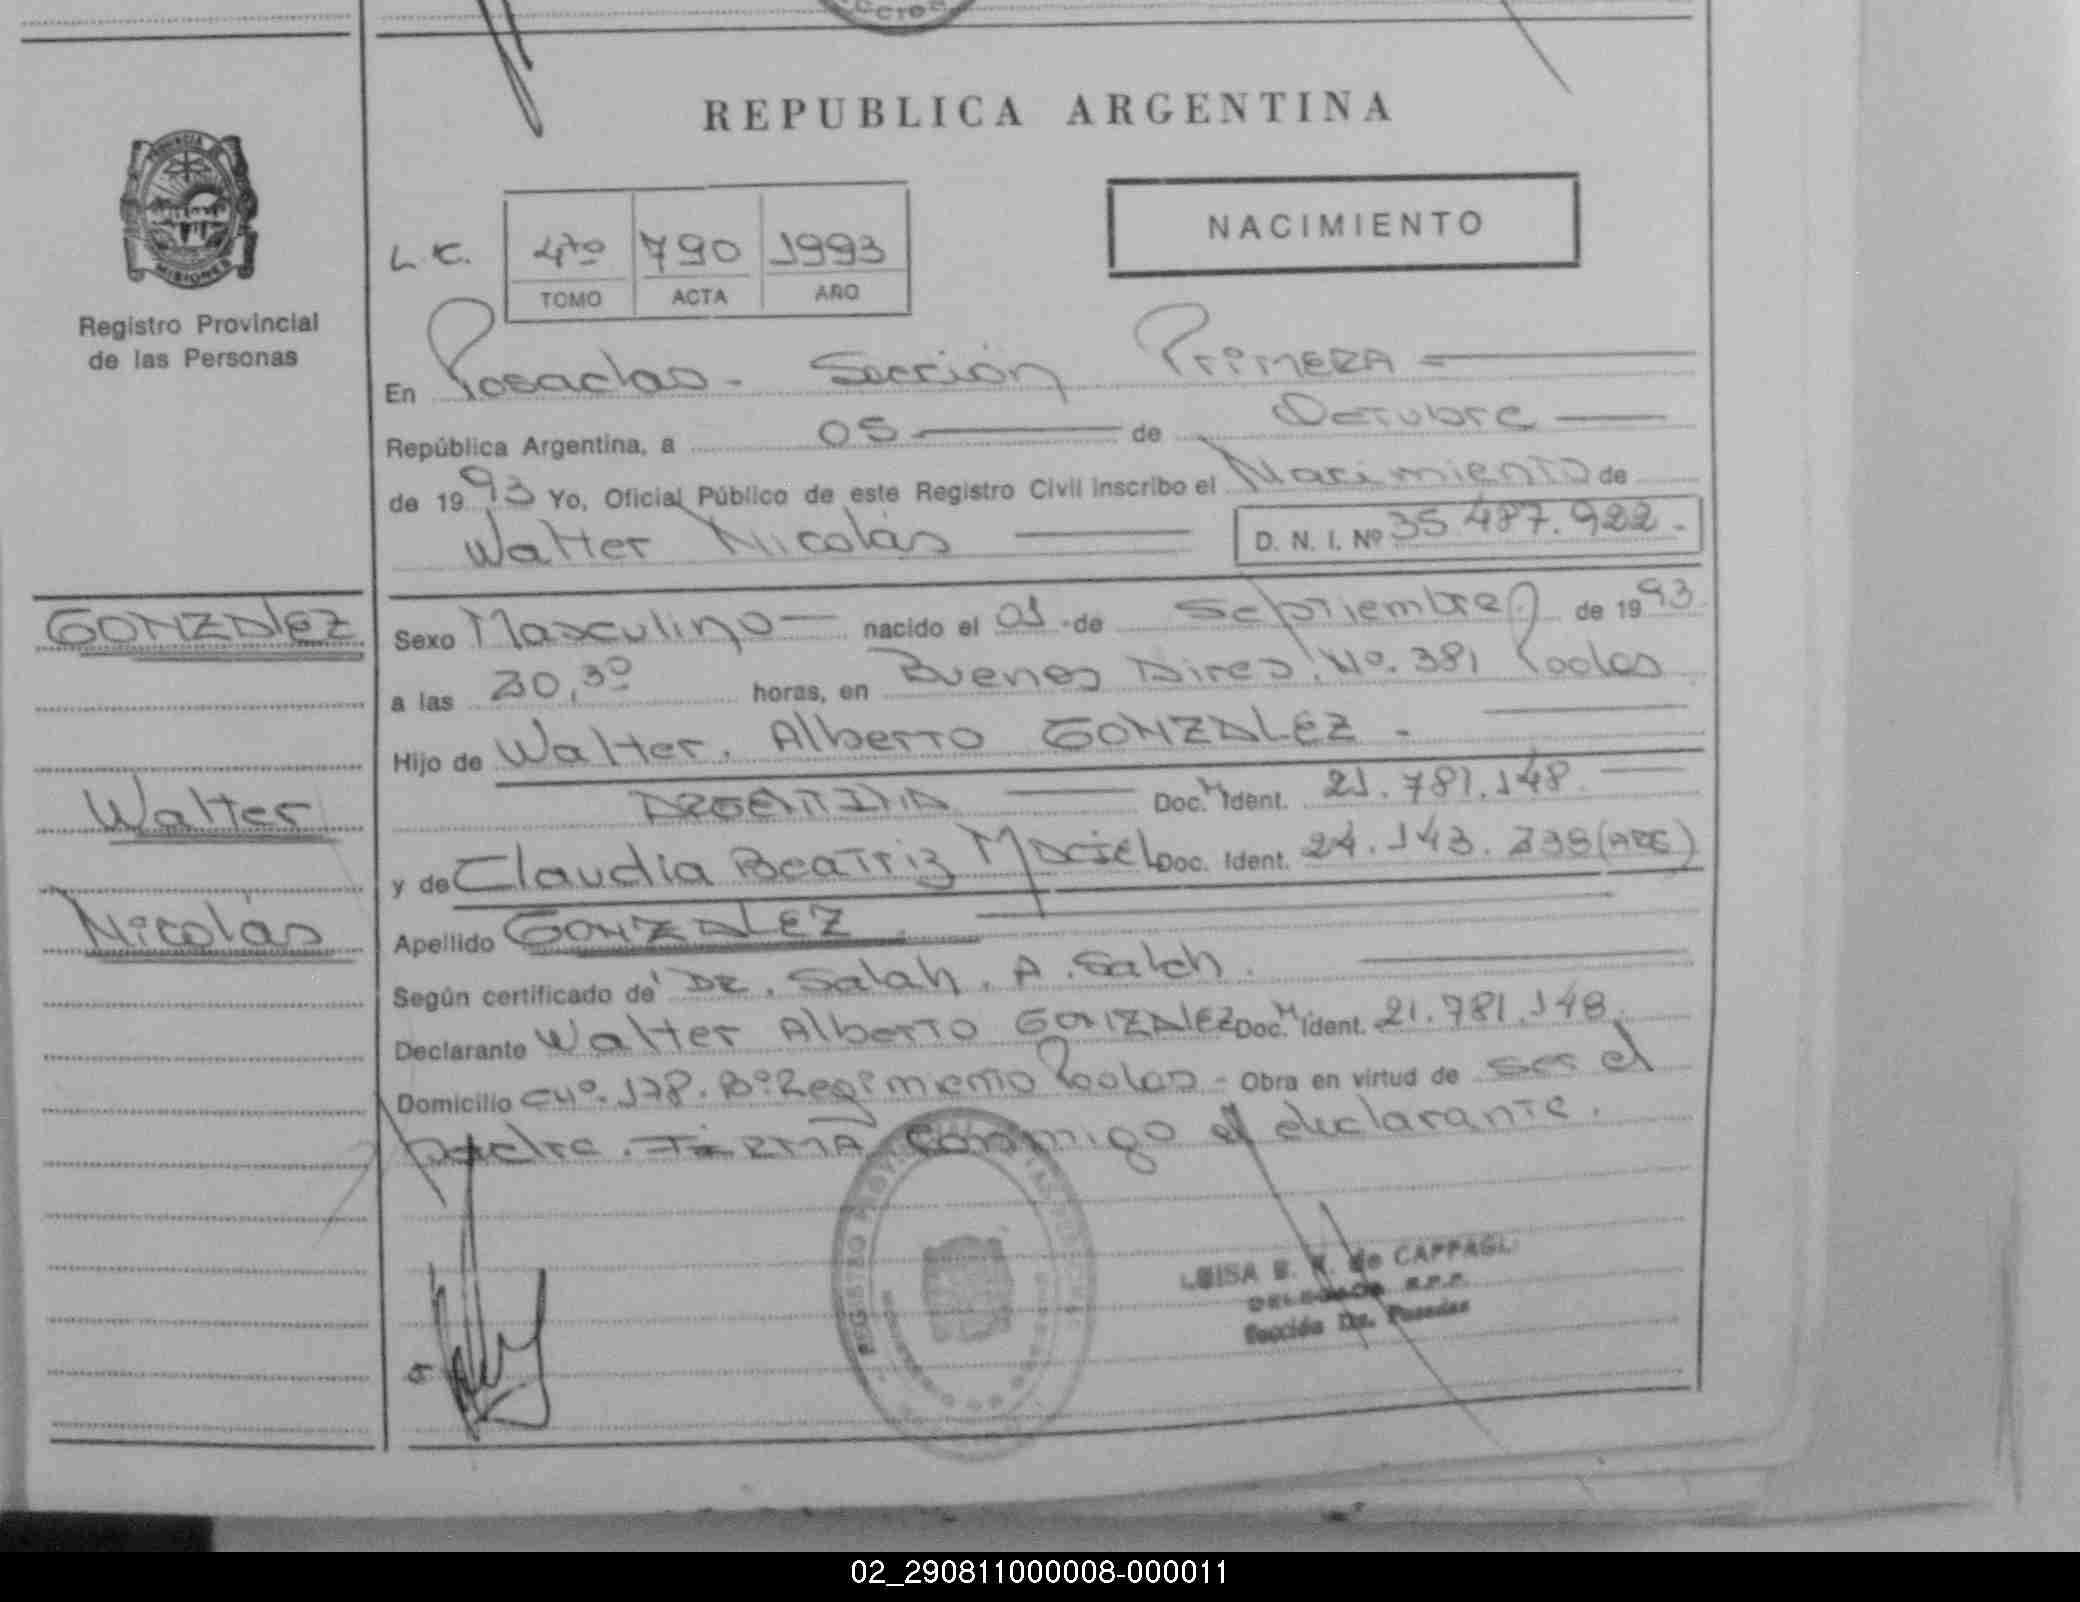 REPUBLICA ARGENTINA
PROVINCIA DE
MISIONES
Registro Provincial
de las Personas
NACIMIENTO
L.C. 4to 790 1993
TOMO ACTA AÑO
En Posadas - Sección Primera
República Argentina, a 05 de Octubre
de 1993 Yo, Oficial Público de este Registro Civil inscribo el Nacimiento de
Walter Nicolás D. N. I. Nº 35.487.922.-
GONZALEZ
Walter
Nicolás
Sexo Masculino nacido el 01 de Septiembre de 1993
a las 20,30 horas, en Buenos Aires. No. 381 Pdas
Hijo de Walter. Alberto GONZALEZ -
ARGENTINA Doc. M Ident. 21.781.148.
y de Claudia Beatriz Maciel Doc. Ident. 24.143.238 (ARG)
Apellido GONZALEZ
Según certificado de DR. Salah. A. Saleh.
Declarante Walter Alberto GONZALEZ Doc. M Ident. 21.781.148.
Domicilio 178. Bº Regimiento Pdas - Obra en virtud de ser el
padre. FIRMA conmigo el declarante.
REGISTRO
LUISA E. de CAPPAGLI
DELEGADA R.P.P.
Sección 1ra. Posadas
02_290811000008-000011